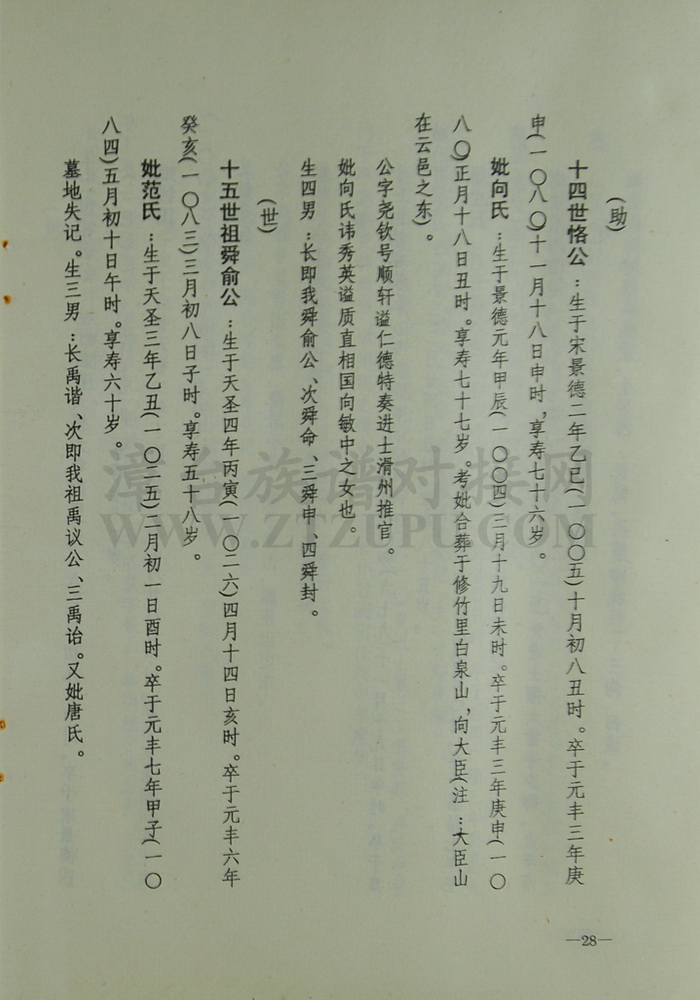 （助）
十四世恪公：生于宋景德二年乙巳（一〇〇五）十月初八丑时。卒于元丰三年庚
申（一〇八〇）十一月十八日申时，享寿七十六岁。
妣向氏：生于景德元年甲辰（一〇〇四）三月十九日未时。卒于元丰三年庚申（一〇
八〇）正月十八日丑时。享寿七十七岁。考妣合葬于修竹里白泉山，向大臣（注：大臣山
在云邑之东）。
公字尧钦号顺轩谥仁德特奏进士滑州推官。
妣向氏讳秀英谥质直相国向敏中之女也。
生四男：长即我舜俞公、次舜命、三舜申、四舜封。
（世）
十五世祖舜俞公：生于天圣四年丙寅（一〇二六）四月十四日亥时。卒于元丰六年
癸亥（一〇八三）三月初八日子时。享寿五十八岁。
妣范氏：生于天圣三年乙丑（一〇二五）二月初一日酉时。卒于元丰七年甲子（一〇
八四）五月初十日午时。享寿六十岁。
墓地失记。生三男：长禹谐、次即我祖禹议公、三禹诒。又妣唐氏。
—28—
漳台族谱对接网
WWW.ZTZUPU.COM